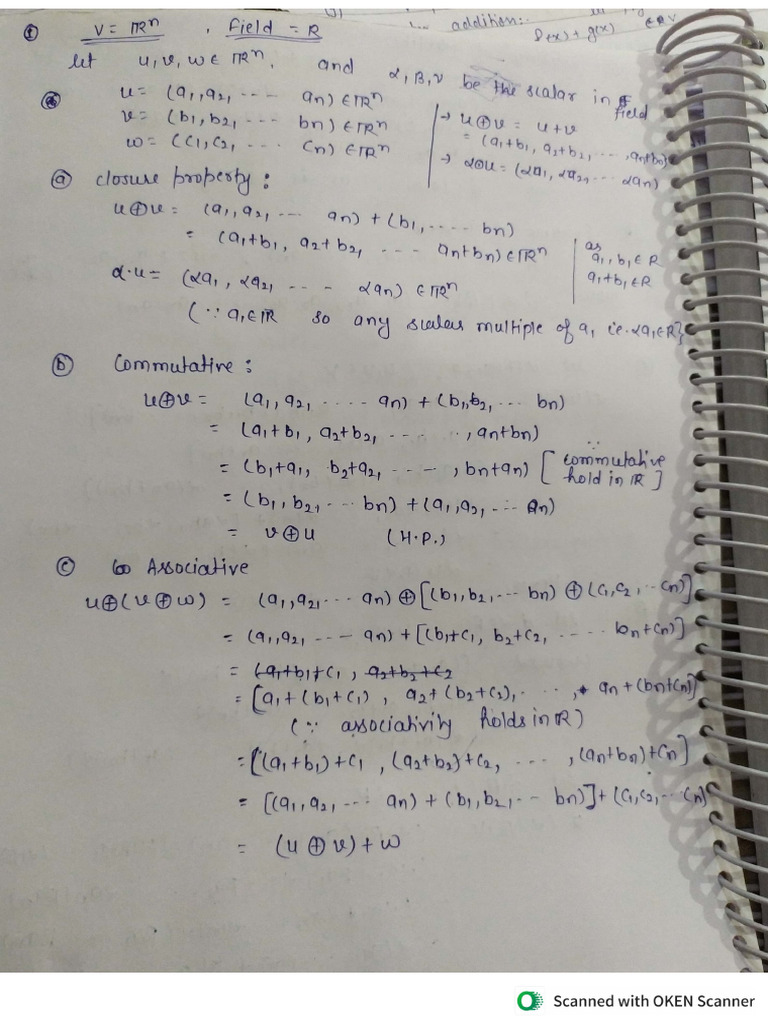 addition:
f(x)+g(x) ∈ V
① V = ℝⁿ , Field = R
let u, v, w ∈ ℝⁿ, and α, β, ν be the scalar in field
u = (a₁, a₂, ---- an) ∈ ℝⁿ
v = (b₁, b₂, ---- bn) ∈ ℝⁿ
w = (c₁, c₂, ---- cn) ∈ ℝⁿ
→ u⊕v = u+v
= (a₁+b₁, a₂+b₂, ---, an+bn)
→ α⊙u = (αa₁, αa₂, --- αan)
ⓐ closure property :
u⊕v = (a₁, a₂, --- an) + (b₁, ---- bn)
= (a₁+b₁, a₂+b₂, --- an+bn) ∈ ℝⁿ
as
a₁, b₁ ∈ R
a₁+b₁ ∈ R
α·u = (αa₁, αa₂, --- - αan) ∈ ℝⁿ
(∵ a₁ ∈ ℝ so any scalar multiple of a₁ i.e. αa₁ ∈ R}
ⓑ Commutative :
u⊕v = (a₁, a₂, ----- an) + (b₁, b₂, --- bn)
= (a₁+b₁, a₂+b₂, -----, an+bn)
= (b₁+a₁, b₂+a₂, -----, bn+an) [∵ commutative
hold in ℝ]
= (b₁, b₂, --- bn) + (a₁, a₂, --- an)
= v⊕u (H.P.)
ⓒ Associative
u⊕(v⊕w) = (a₁, a₂, --- an) ⊕ [(b₁, b₂, --- bn) ⊕ (c₁, c₂, -- cn)]
= (a₁, a₂, ---- an) + [(b₁+c₁, b₂+c₂, ----- bn+cn)]
= (a₁+b₁+c₁, a₂+b₂+c₂
= [a₁+(b₁+c₁), a₂+(b₂+c₂), ----, an+(bn+cn)]
(∵ associativity holds in ℝ)
= [(a₁+b₁)+c₁, (a₂+b₂)+c₂, ---, (an+bn)+cn]
= [(a₁, a₂, --- an) + (b₁, b₂, --- bn)] + (c₁, c₂, --- cn)
= (u⊕v)+w
Scanned with OKEN Scanner